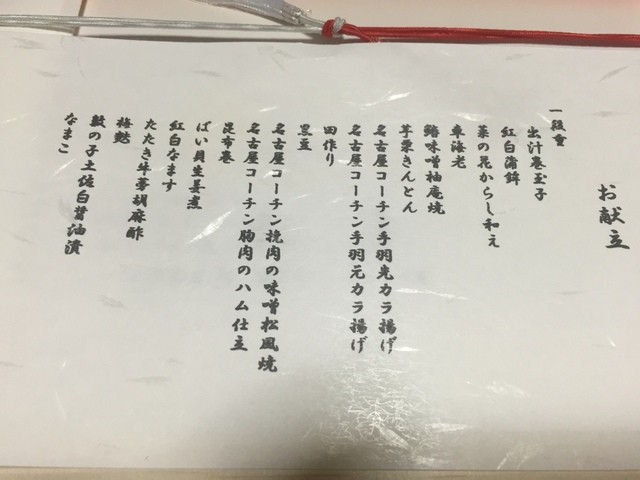 お献立
一段重
出汁巻玉子
紅白蒲鉾
菜の花からし和え
車海老
鰆味噌柚庵焼
芋栗きんとん
名古屋コーチン手羽先カラ揚げ
名古屋コーチン手羽元カラ揚げ
田作り
黒豆
名古屋コーチン挽肉の味噌松風焼
名古屋コーチン胸肉のハム仕立
昆布巻
ばい貝生姜煮
紅白なます
たたき牛蒡胡麻酢
梅麩
数の子土佐白醤油漬
なまこ